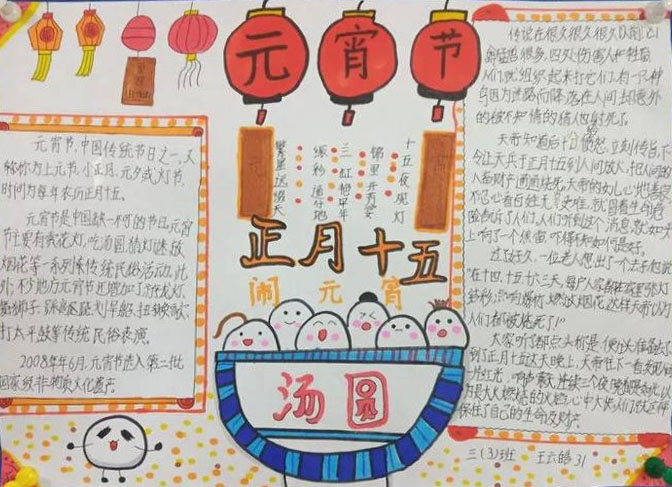 元宵节
元宵节,中国传统节日之一,又
称你为上元节,小正月,元夕或灯节,
时间为每年农历正月十五。
元宵节是中国缺一不可的节日,元宵
节主要有赏花灯,吃汤圆,猜灯谜,放
烟花等一系列传统民俗活动。此
外,不少地方元宵节也增加了游龙灯,
舞狮子,踩高跷,划旱船,扭秧歌,
打太平鼓等传统民俗表演。
2008年6月,元宵节选入第二批
国家级非物质文化遗产。
元
宵
十五夜观灯
锦里开芳宴
三缸艳早年
缛彩遥分地
繁星远缀天
正月十五
闹元宵
汤圆
传说在很久很久以前,凶
禽猛兽很多,四处伤害人和牲畜,
人们就组织起来打它们,有一只神
鸟因为迷路而降落在人间,却意外
的被不知情的猎人射死了。
天帝知道后十分愤怒,立刻传旨下
令让天兵于正月十五到人间放火,把人间的
人畜财产通通烧死。天帝的女儿心地善良,
不忍心看百姓无辜受难,就冒着生命危
险告诉了人们,人们听到这个消息,就如头
上响了一个焦雷,吓得不知如何是好。
过了好久,一位老人想出了个法子,他说
"在十四,十五,十六三天,每户人家都在家里张灯
结彩,点响爆竹,燃放烟花,这样天帝以为
人们都被烧死了!"
大家听了都点头称是,便分头准备去了,
到了正月十五这天晚上,天帝往下一看,发现人间
一片红光,响声震天,连续三个夜晚都是如此,以
为是大火燃烧的火焰,心中大快,人们就这样
保住了自己的生命及财产。
三(3)班 王云皓 31